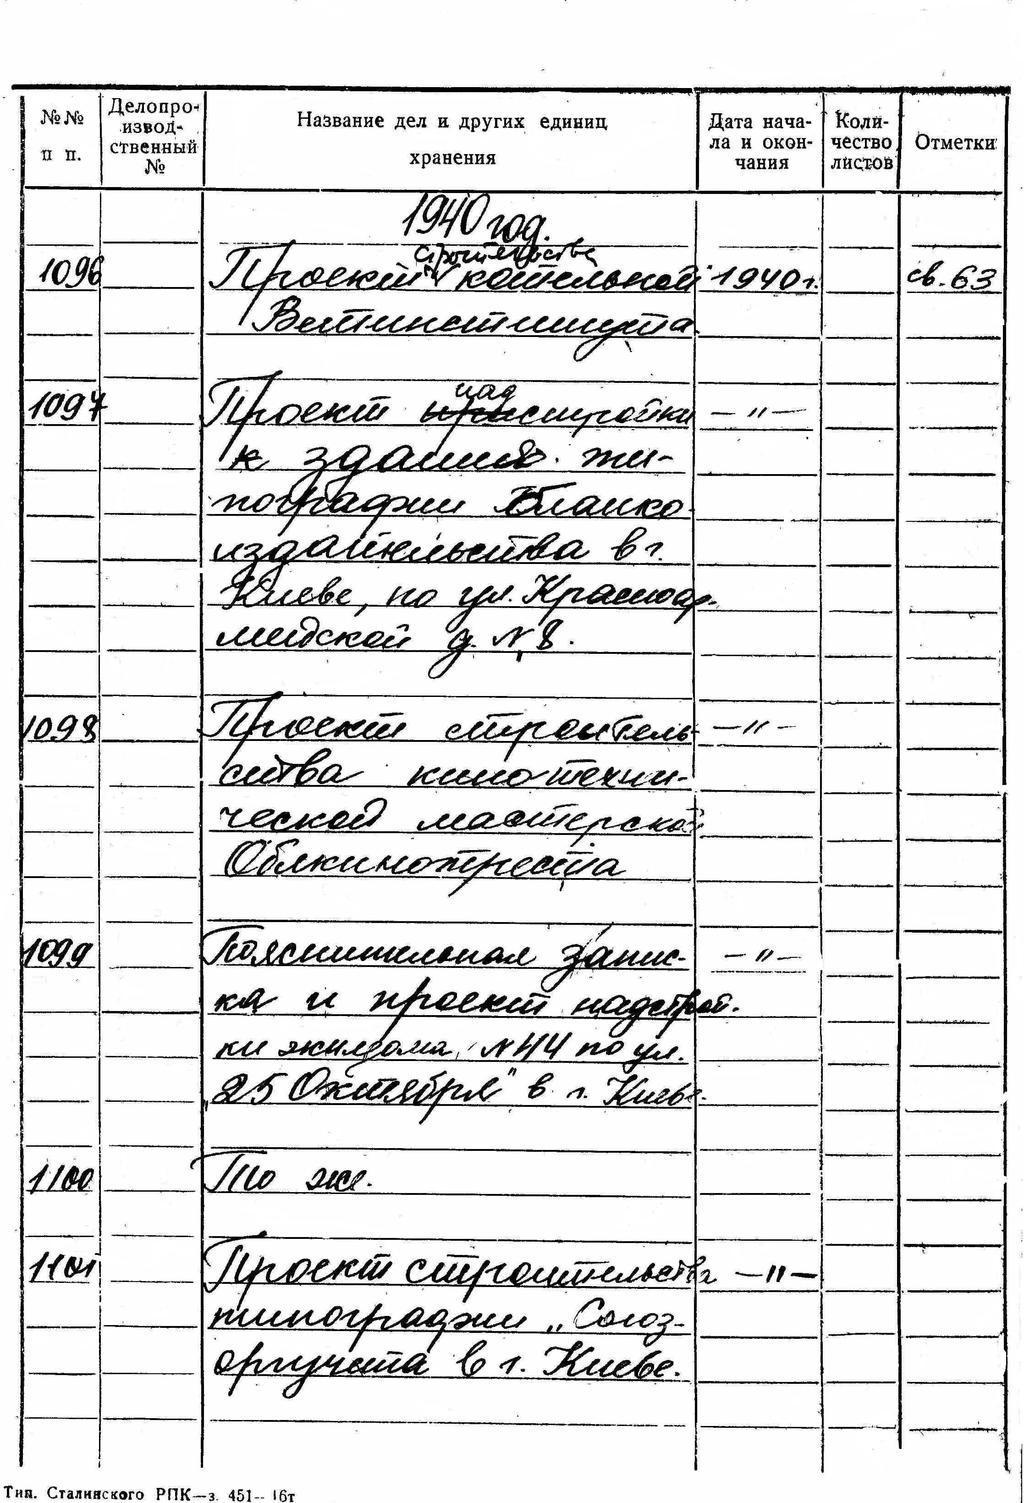 №№ п п.
Делопро-
извод-
ственный
№
Название дел и других единиц
хранения
Дата нача-
ла и окон-
чания
Коли-
чество
листов
Отметки
1940 год.
строительства
1096 Проект котельной 1940 г. св. 63
Ветинститута.
над
1097 Проект пристройки — " —
к зданию ти-
пографии Бланко-
издательства в г.
Киеве, по ул. Красноар-
мейской д. N 8.
1098 Проект строитель- — " —
ства кинотехни-
ческой мастерской
Облкинотреста
1099 Пояснительная запис- — " —
ка и проект надстрой-
ки жилдома N 44 по ул.
"25 Октября" в г. Киеве.
1100 То же.
1101 Проект строительства — " —
типографии „Союз-
оргучета в г. Киеве.
Тип. Сталинского РПК—з. 451—16т